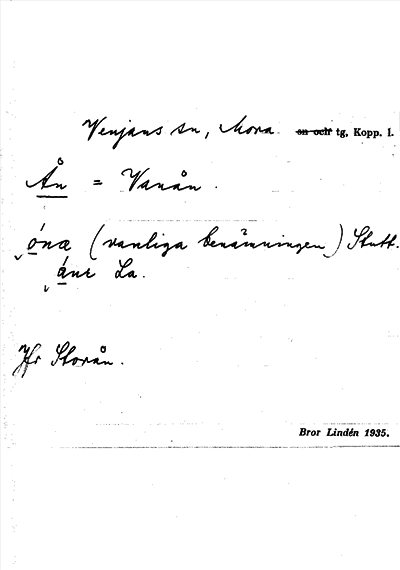 Venjans sn, Mora ~~sn och~~ tg, Kopp. l.
Ån = Vanån.
óna (vanliga benämningen) Stutt.
ánɩ La.
Jfr Storån.
Bror Lindén 1935.